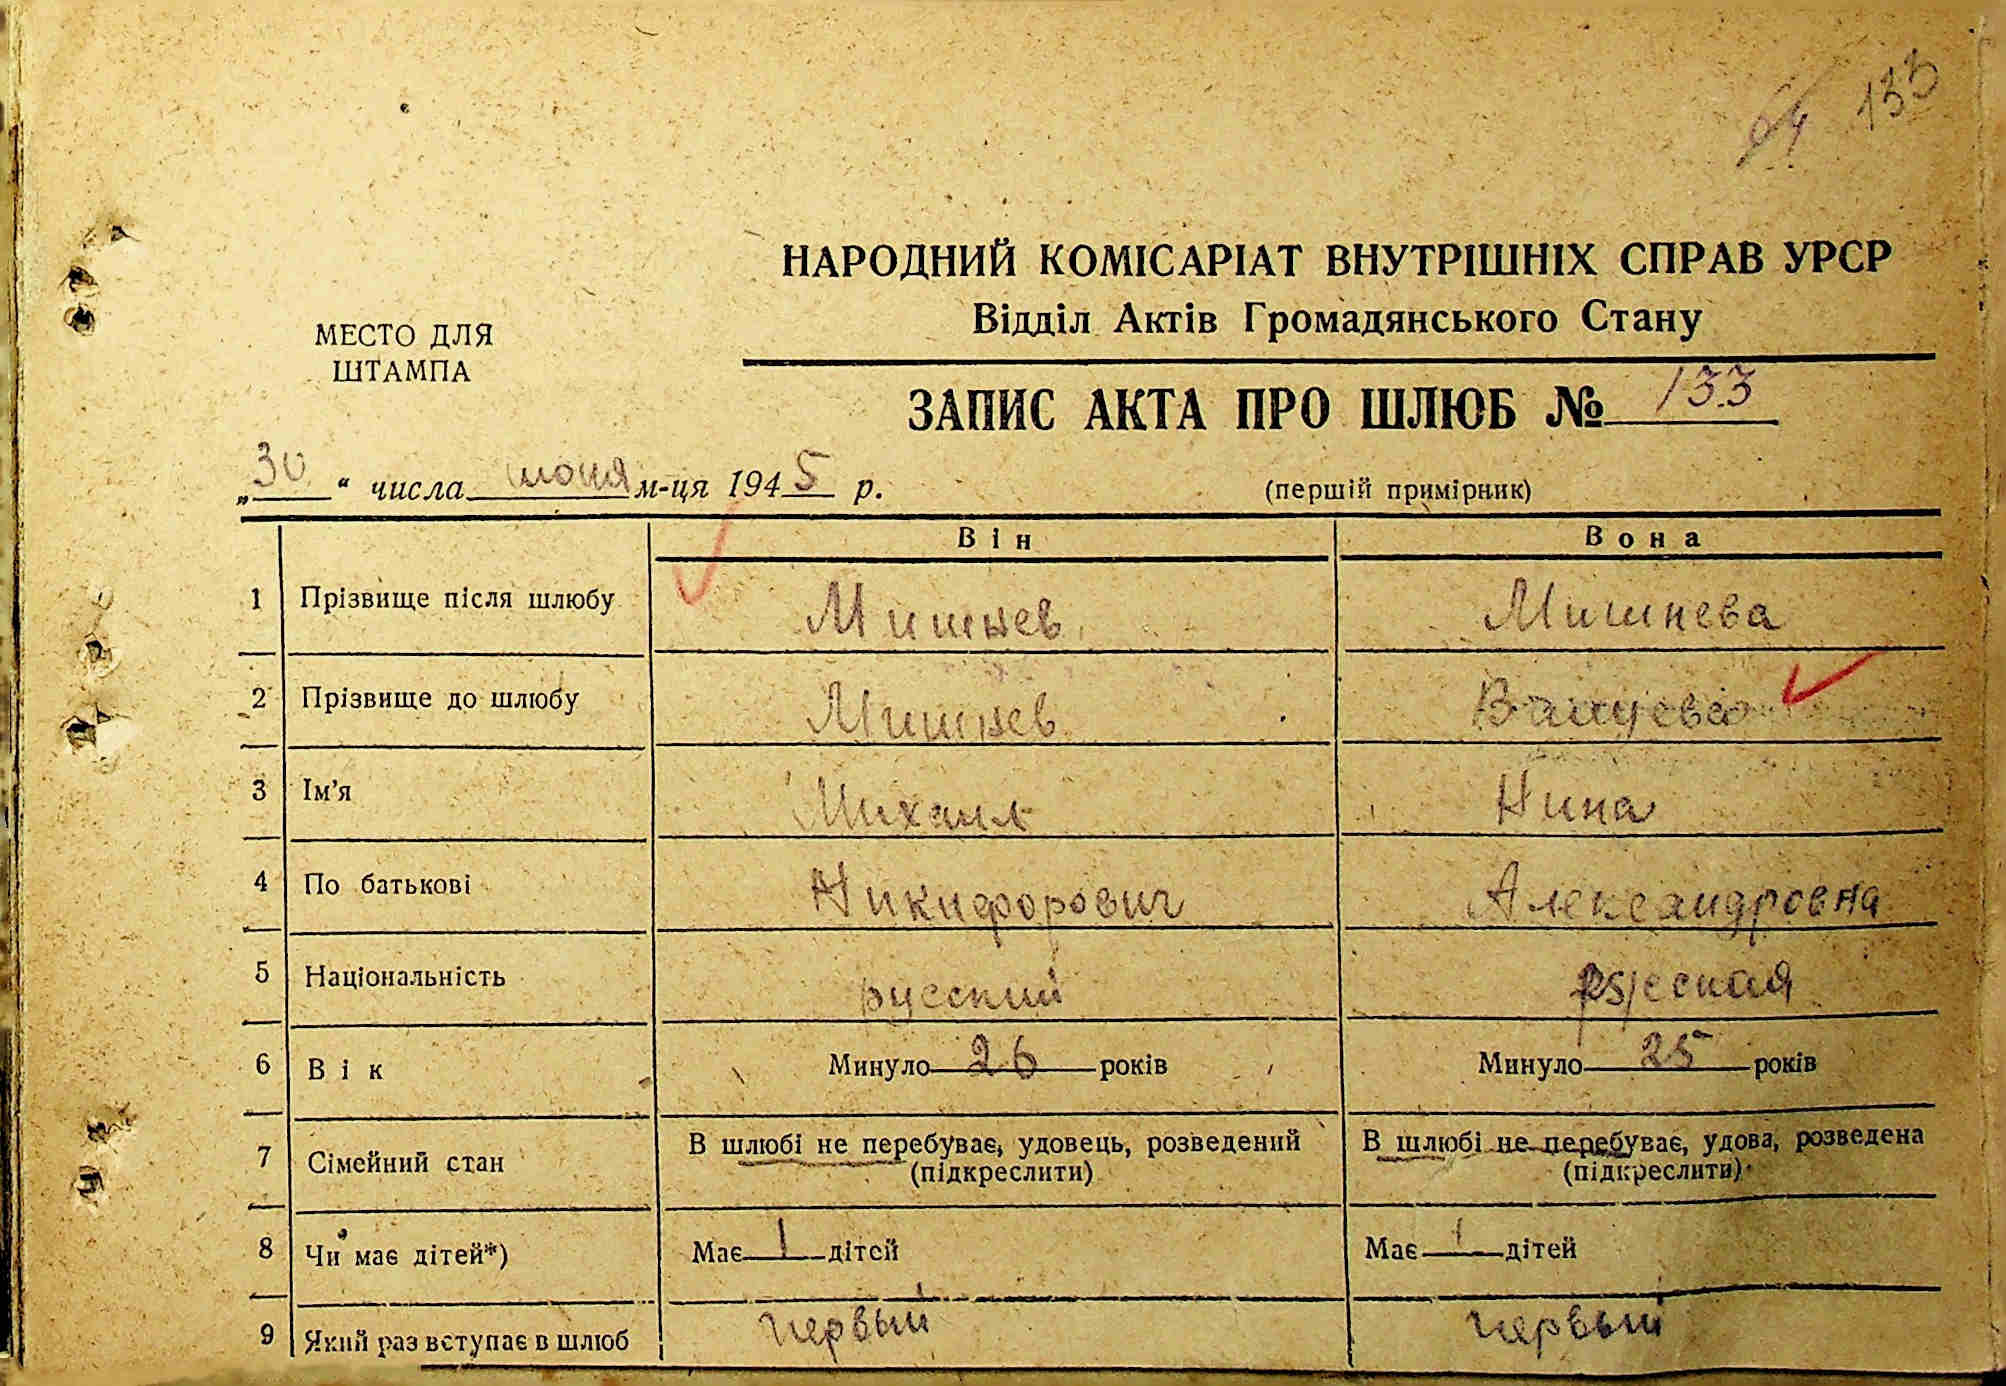 64 133
НАРОДНИЙ КОМІСАРІАТ ВНУТРІШНІХ СПРАВ УРСР
Відділ Актів Громадянського Стану
МЕСТО ДЛЯ
ШТАМПА
ЗАПИС АКТА ПРО ШЛЮБ № 133
„30" числа июня м-ця 1945 р. (першій примірник)
Він Вона
1 Прізвище після шлюбу Мишнев Мишнева
2 Прізвище до шлюбу Мишнев
3 Ім'я Михаил Нина
4 По батькові Никифорович Александровна
5 Національність русский русская
6 Вік Минуло 26 років Минуло 25 років
7 Сімейний стан В шлюбі не перебуває, удовець, розведений В шлюбі не перебуває, удова, розведена
(підкреслити) (підкреслити)
8 Чи має дітей*) Має 1 дітей Має 1 дітей
9 Який раз вступає в шлюб первый первый